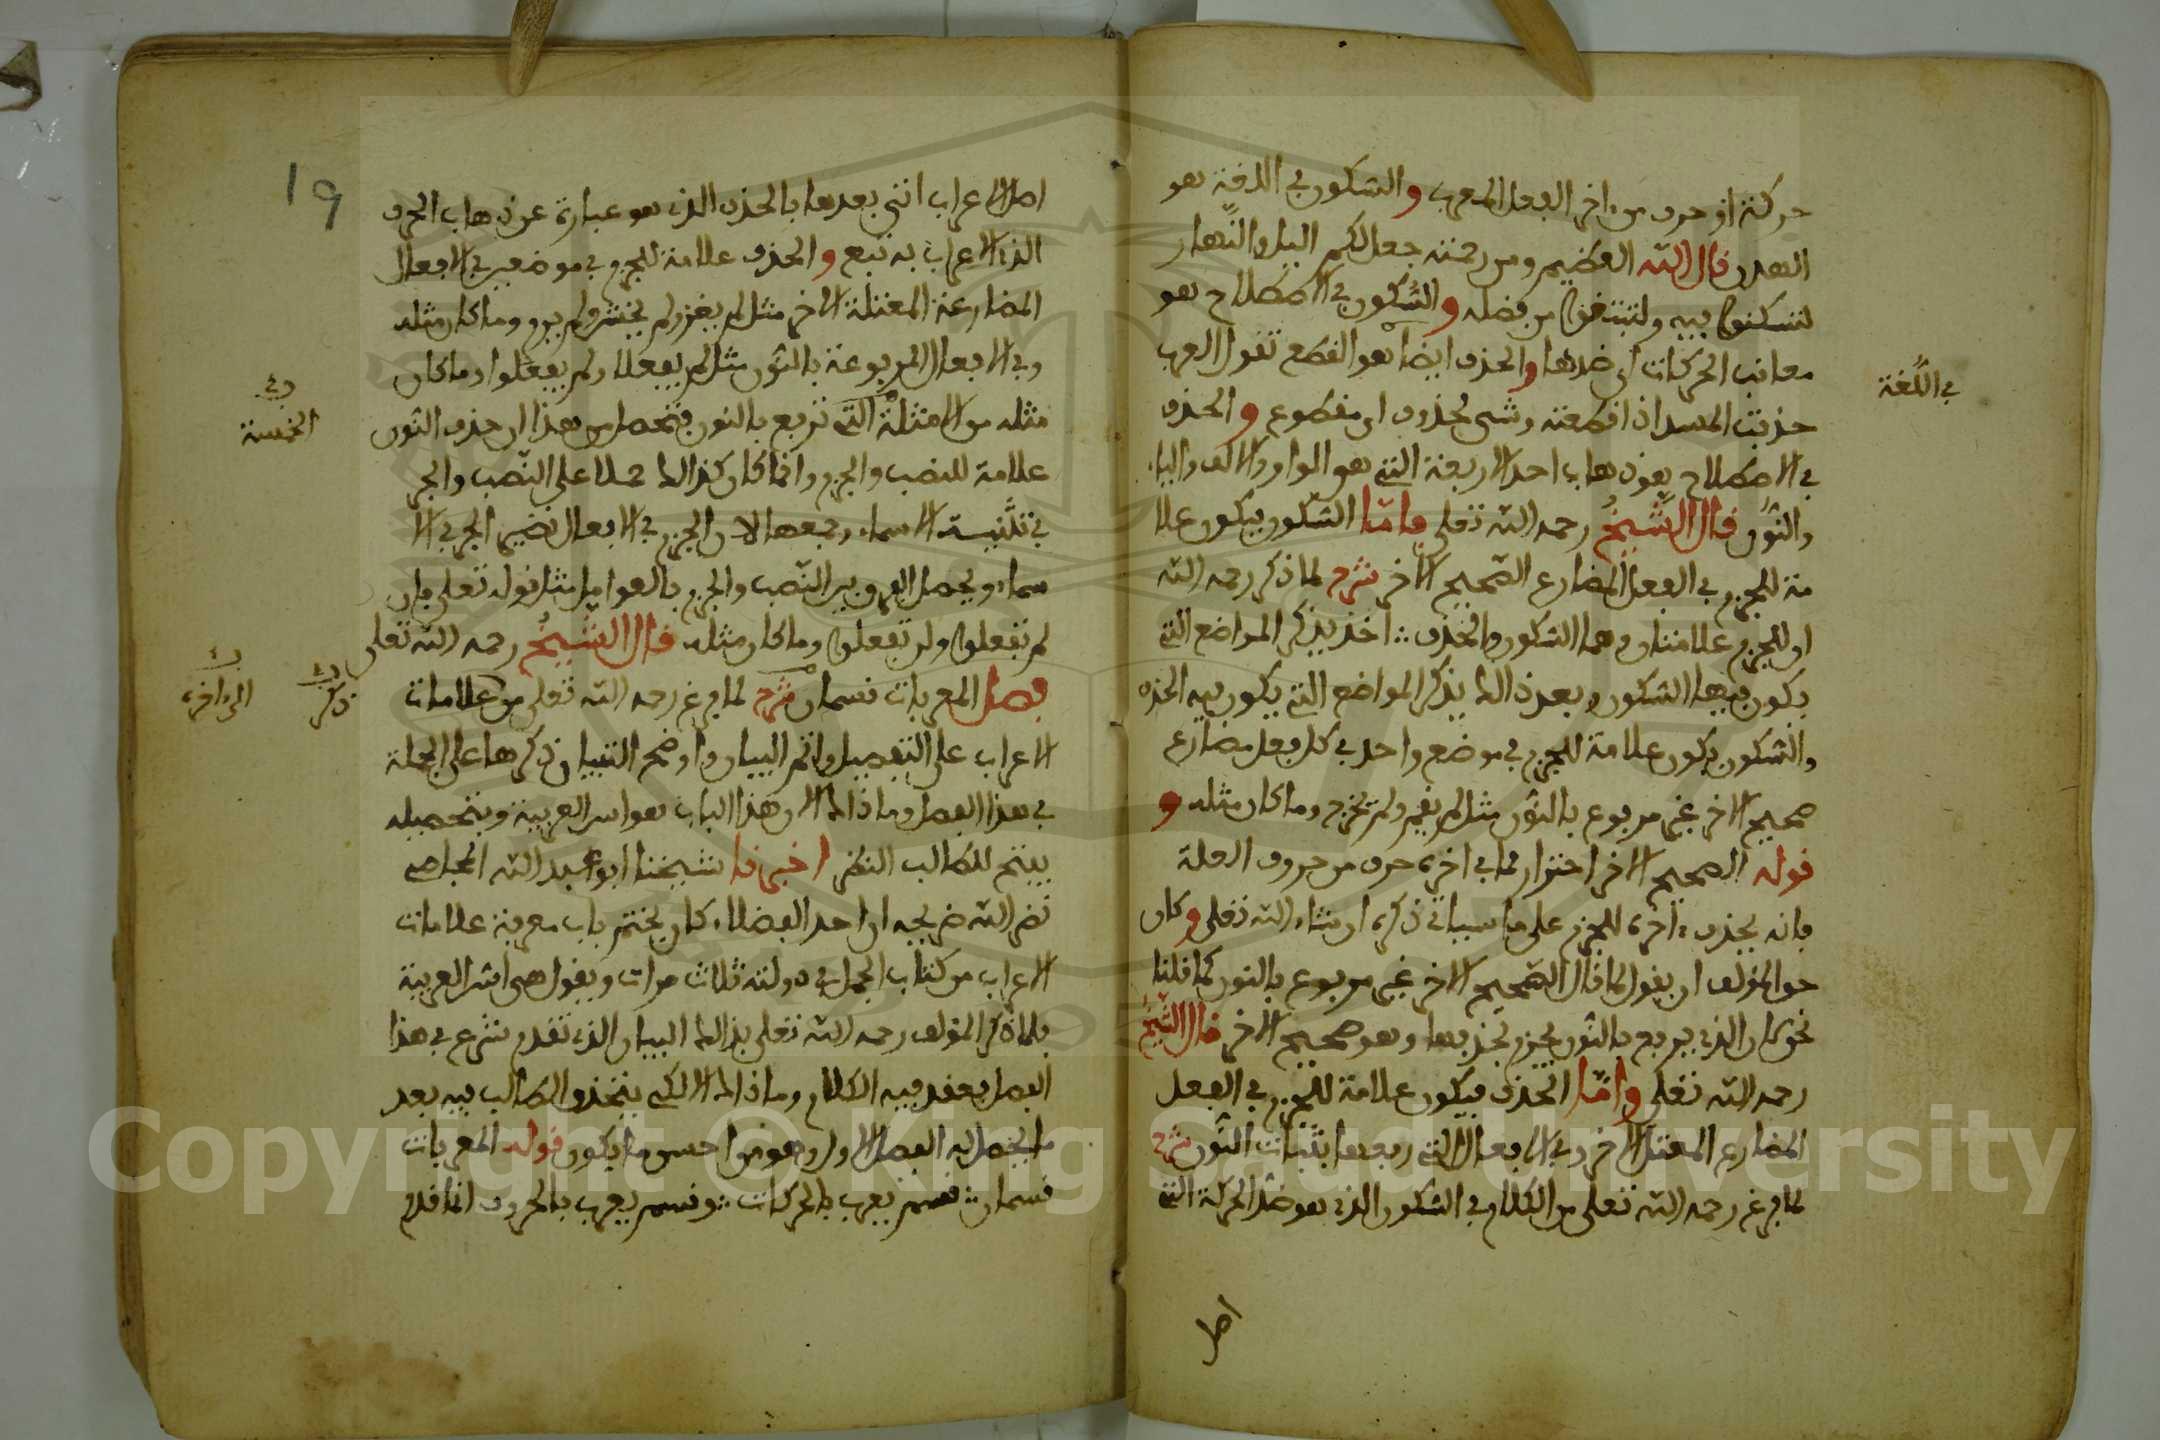 حركة او حرف من ءاخر الفعل المعرب والسكون في اللغة هو
الهدن قال الله العظيم ومن رحمته جعل لكم اليل والنهار
لتسكنوا فيه ولتبتغوا من فضله والسكون في الاصطلاح هو
معاقب الحركات اي ضدها والحذف ايضا هو القطع تقول العرب
في اللغة
حذفت المسد اذا قطعته وشيء محذوف اي مقطوع والحذف
في الاصطلاح هو ذهاب احد الاربعة التي هو الواو والالف والياء
والنون قال الشيخ رحمه الله تعلى واما السكون فيكون علا
مة للجزم في الفعل المضارع الصحيح الاخر شرح لما ذكر رحمه الله
ان للجزم علامتان وهما السكون والحذف اخذ يذكر المواضع التي
يكون فيها السكون وبعد ذالك يذكر المواضع التي يكون فيه الحذف
والسكون يكون علامة للجزم في موضع واحد في كل فعل مضارع
صحيح الاخر غير مرفوع بالنون مثل لم يقم ولم يخرج وما كان مثله و
قوله الصحيح الاخر احتراز مما في اخره حرف من حروف العلة
فانه يحذف ءاخره للجزم على ما سياتي ذكره ان شاء الله تعلى وكان
حق المؤلف ان يقول لما قال الصحيح الاخر غير مرفوع بالنون كما قلنا
نحن كان الذي يرفع بالنون يجزم بحذفها وهو صحيح الاخر قال الشيخ
رحمه الله تعلى واما الحذف فيكون علامة للجزم في الفعل
المضارع المعتل الاخر وفي الافعال التي رفعها بثبات النون شرح
لما فرغ رحمه الله تعلى من الكلام في السكون الذي هو ضد الحركة التي
اصل
19
اصل الاعراب اتى بعدها بالحذف الذي هو عبارة عن ذهاب الحرف
الذي الاعراب به تبع والحذف علامة للجزم في موضعين في الافعال
المضارعة المعتلة الاخر مثل لم يغز ولم يخش ولم يرم وما كان مثله
وفي الافعال المرفوعة بالنون مثل لم يفعلا ولم يفعلوا وما كان
مثله من الامثلة التي ترفع بالنون فتحصل من هذا ان حذف النون
الخمسة
علامة للنصب والجزم وانما كان كذالك حملا على النصب والجر
في تثنية الاسماء وجمعها لان الجزم في الافعال نضير الجر في الا
سماء ويحصل الفرق بين النصب والجزم بالعوامل مثل قوله تعلى فان
لم تفعلوا ولن تفعلوا وما كان مثله قال الشيخ رحمه الله تعلى
فصل المعربات قسمان شرح لما فرغ رحمه الله تعلى من علامات
ذكر
الى اخره
الاعراب على التفصيل واتم البيان واوضح التبيان ذكرها على الجملة
في هذا الفصل وما ذالك الا ان هذا الباب هو اس العربية وبتحصيله
يفتح للطالب النظر اخبرنا شيخنا ابو عبد الله المجاصي
نضر الله ضريحه ان احد الفضلاء كان يختم باب معرفة علامات
الاعراب من كتاب الجمل في دولته ثلاث مرات ويقول هي اس العربية
فلما ذكر المؤلف رحمه الله تعلى بذالك البيان الذي تقدم شرع في هذا
الفصل يعقد فيه الكلام وما ذالك الا لكي يتخذ الطالب فيه بعد
ما يحصل له الفصل الاول وهو من احسن ما يكون قوله المعربات
قسمان قسم يعرب بالحركات وقسم يعرب بالحروف انما قدم